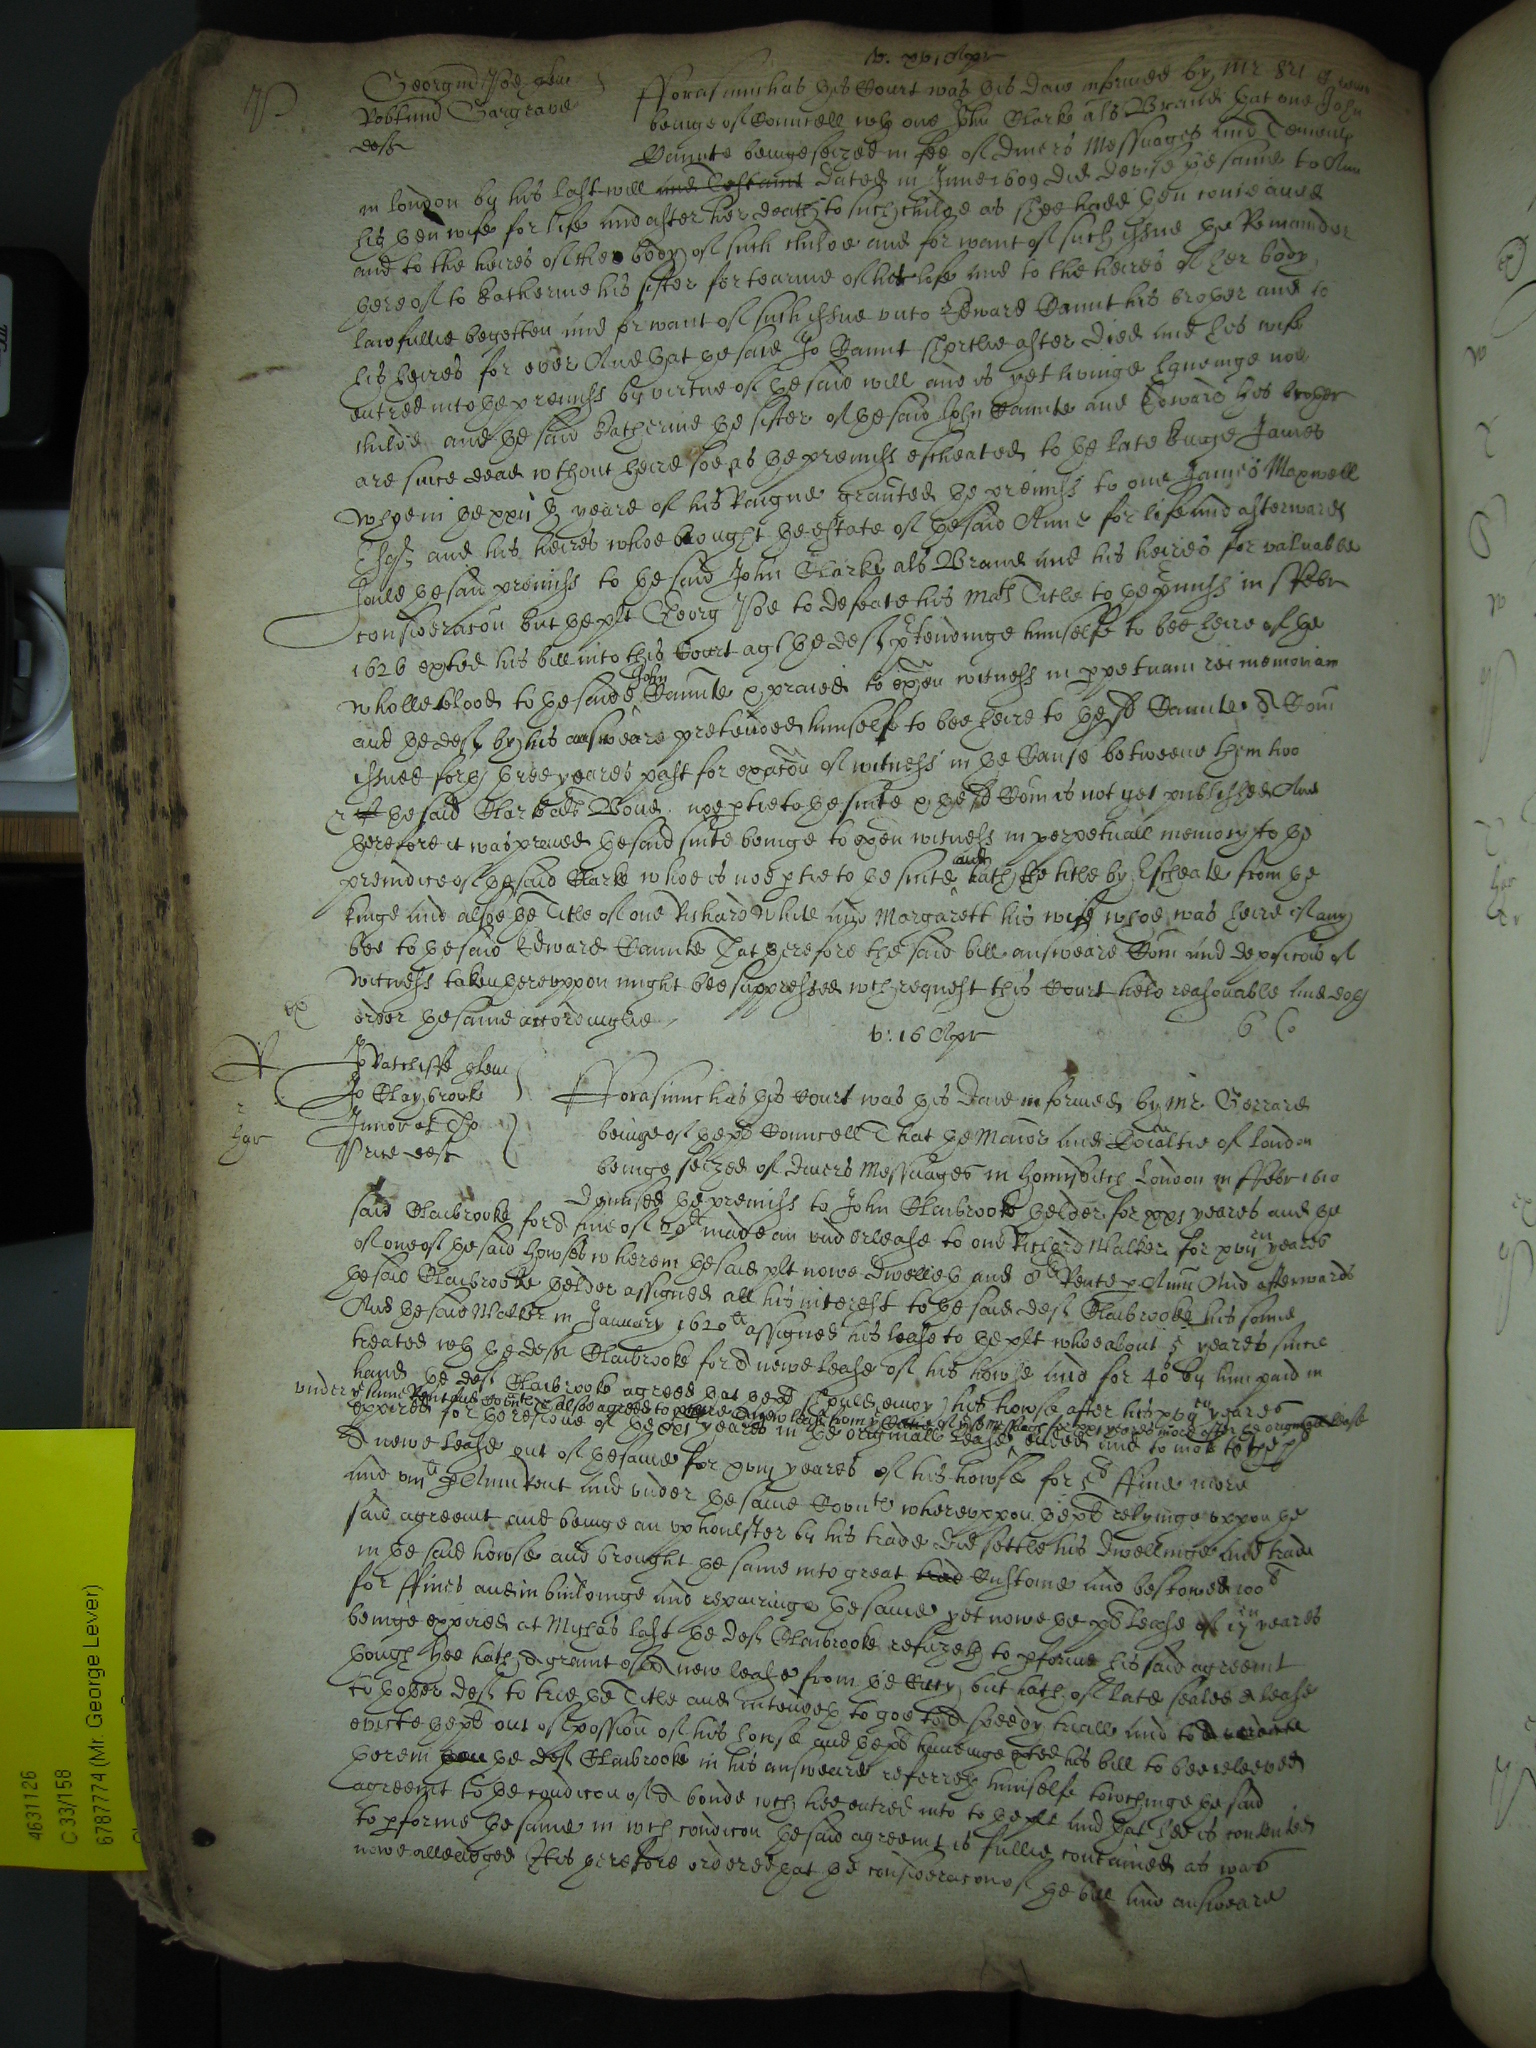 v. xvi Apr
Georg Ivie plen
Robt and Hargrave
deft
Forasmuch as this Court was this daie informed by Mr
beinge of Councell wth one John Clarke als Brand that one John
Daunte beinge seized in fee of divers Messuages and Tenemts
in london by his last will and Testamt dated in June 1609 did devise the same to Ann
his then wife for life and after her death to such childe as shee hadd then conceaved
and to the heires of the body of such childe and for want of such issue the Remainder
thereof to Katherine his sister for tearme of her life and to the heires of her body
lawfullie begotten and for want of such issue unto Edward Daunt his brother and to
his heires for ever And that the said Jo Daunt shortlie after died and his wife
entred into the premiss by virtue of the said will and is yet livinge haveinge noe
childe and the said Katherine the sister of the said John Daunte and Edward his brother
are since dead wthout heire soe as the premiss escheated to the late Kinge James
whoe in the xxii th yeare of his Raigne graunted the premiss to one James Maxwell
and his heires whoe bought the estate of the said Anne for life and afterwards
sould the said premiss to the said John Clarke als Brand and his heires for valuable
consideracon but the plt Georg Ivie to defeate his Mats Title to the pmiss in Febr
1626 exhted his bill into this Court agt the deft ptendinge himselfe to bee heire of the
wholle blood to the saide John Daunte & praied to exen witness in ppetuam rei memoriam
and the deft by his answeare pretended himselfe to bee heire to the sd Daunte & a Com
issued forth three yeares past for exacon of witness in the Cause betweene them two
the said Clarke als Brand noe ptie to the suite & the sd Com is not yet published And
therefore it was praied the said suite beinge to exen witness in perpetuall memory to the
preiudice of the said Clarke whoe is noe ptie to the suite and hath the title by Escheate from the
Kinge and alsoe the Title of one Richard White and Margarett his wife whoe was heire if any
bee to the said Edward Daunte That therefore the said bill answeare Com and deposicons of
witness taken thereuppon might bee suppressed wch request this Court held reasonable and doth
order the same accordinglie
v: 16 Apr
Jo Ratcliffe plen
Jo Claybrooke
Junior et Tho
Price deft
Forasmuch as this Court was this daie informed by Mr Gerrard
beinge of the pts Councell That the Maior and Coialtie of London
beinge seized of divers Messuages in Hownsditch London in Febr 1610
Demised the premiss to John Claibrooke thelder for xxi yeares and the
said Claibrooke for a fine of 20l made an underlease to one Richard Walker for xvii en yeares
of one of the said howses wherein the said plt nowe dwelleth and 8l Rente p Ann And afterwards
the said Claibrooke thelder assigned all his interest to the said deft Claibrooke his sonne
And the said Walker in January 1620 assigned his lease to the plt whoe about 5 yeares since
treated wth the deft Claibrooke for a newe lease of his howse and for 40s by him paid in
hand the deft Claibrooke agreed that the pt should enioy his howse after his xvii en yeares
expired for the residue of the xxi yeares in the originall lease
under the same Rent and
a newe lease out of the same for xviij yeares of his howse for 5l ffine more
and viijl p Ann Rent and under the same Covnts whereuppon the pt relyinge uppon the
said agreemt and beinge an upholster by his trade did settle his dwellinge and trade
in the said howse and brought the same into great had Custome and bestowed 100l
for ffines and in buildinge and repairinge the same yet nowe the pts lease of 17 en yeares
beinge expired at Mychas last the deft Claibrooke refuzeth to pforme his said agreemt
though hee hath a graunt of a new lease from the Citty but hath of late sealed a lease
to thother deft to trie the Title and intendeth to goe to a speedy triall and to
evicte the pt out of possion of his howse and the pt haveinge exhted his bill to bee releeved
therein the deft Claibrooke in his answeare referreth himselfe towchinge the said
agreemt to the condicon of a bonde wch hee entred into to the plt and that hee is contented
to pforme the same in wch condicon the said agreemt is fullie contained as was
nowe alleadged It is therefore ordered that the consideracon of the bill and answeare
4631126
C 33/158
6787774 (Mr. George Lever)